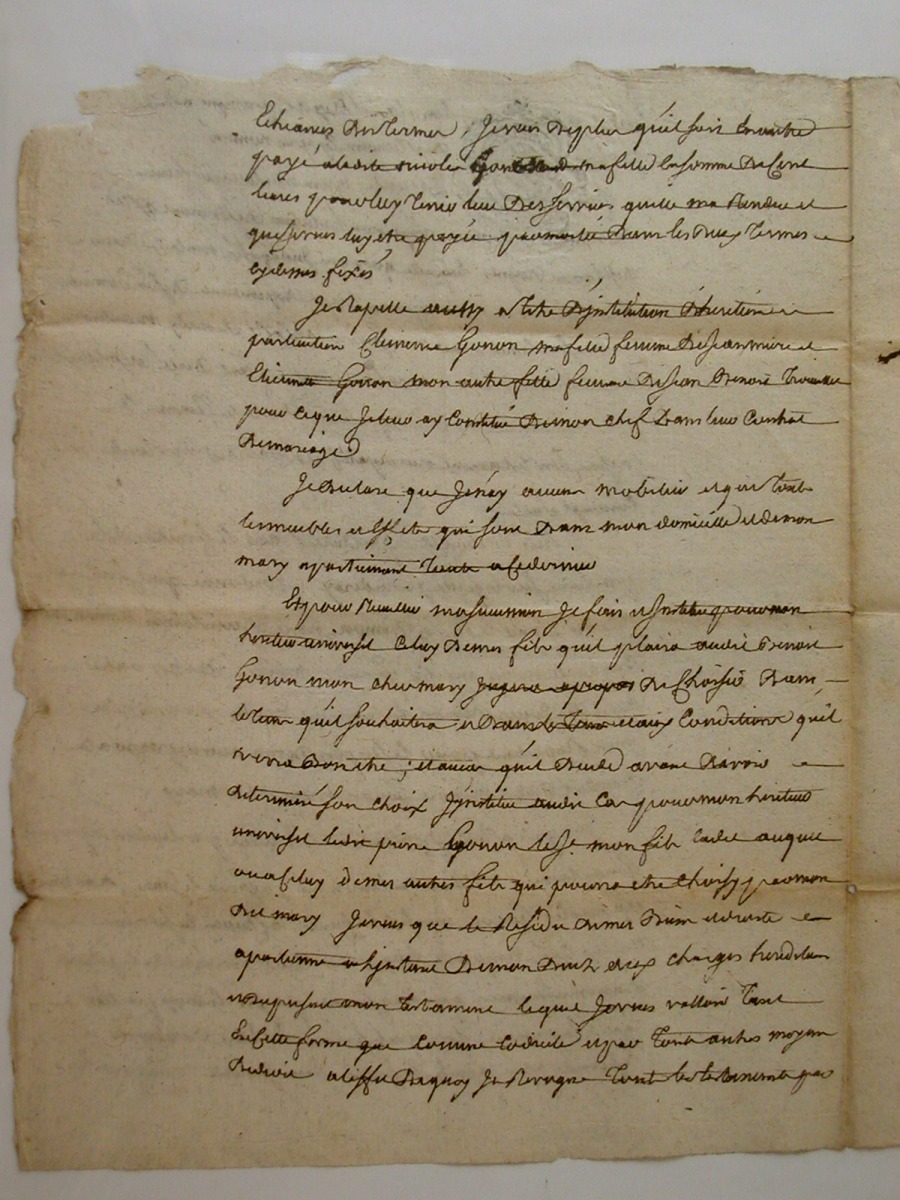 Echeances des termes, Je veus de plus qu'il soit ensuitte
payé a ladite nicole Gonon ma fille la somme de Cent
livres pour luy tenir lieu des services quelle ma Rendue et
que je veus luy etre payée par moitié dans les deux termes
cydessus fixés
Je Rapelle aussy a titre d'institution d'heritiere
particuliere Clemence Gonon ma fille femme de Jean et
Etiennette Gonon mon autre fille femme de Jean Benoit
pour ce que Je leur ay Constitué de mon chef dans leur Contrat
de mariage
Je declare que Je n'ay aucun mobilier et que tout
les meubles et effets qui sont dans mon domicille et de mon
mary apartiennent toute a ce dernier
Et pour Recueillir ma sucession Je fais et institue pour mon
heritier universel Celuy de mes fils qu'il plaira audit Benoit
Gonon mon cher mary Jugera a propos de Choisir dans
le tems qu'il souhaitera et dans les termes et aux Conditions qu'il
verra bon etre ; et au cas qu'il decede avant d'avoir
determiné son choix J'institue audit Cas pour mon heritier
universel ledit pierre Gonon mon fils auquel
ou a Celuy de mes autres fils qui pourra etre Choisy par mon
dit mary Je veus que le Residu de mes biens et droits
apartienne a l'instant de mon deces aux charges hereditaires
et du present mon testament lequel Je veus valloir tant
en cette forme que comme Codicile et par tout autres moyens
de droit a l'effet de quoy Je Revoque tout les testaments par